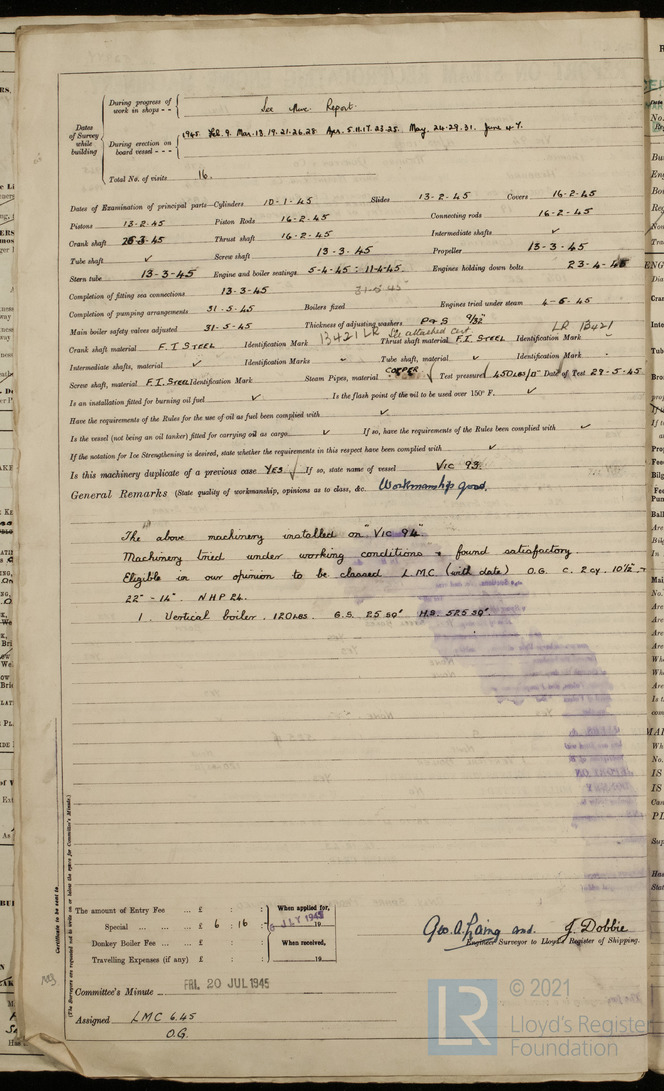 During progress of work in shops - -
See above Report.
Dates of Survey while building
During erection on board vessel - - -
1945 Feb. 9. Mar. 13. 19. 21. 26. 28. Apr. 5. 11. 17. 23. 25. May. 24. 29. 31. June 4. 7.
Total No. of visits 16.
Dates of Examination of principal parts—Cylinders 10-1-45 Slides 13-2-45 Covers 16-2-45
Pistons 13-2-45 Piston Rods 16-2-45 Connecting rods 16-2-45
Crank shaft 26-3-45 Thrust shaft 16-2-45 Intermediate shafts ✓
Tube shaft ✓ Screw shaft 13-3-45 Propeller 13-3-45
Stern tube 13-3-45 Engine and boiler seatings 5-4-45 : 11-4-45 Engines holding down bolts 23-4-45
Completion of fitting sea connections 13-3-45
Completion of pumping arrangements 31-5-45 Boilers fixed 31-5-45 Engines tried under steam 4-6-45
Main boiler safety valves adjusted 31-5-45 Thickness of adjusting washers P & S 9/32"
Crank shaft material F. I STEEL Identification Mark 13421 LR See attached Cert. Thrust shaft material F. I STEEL Identification Mark LR 13421
Intermediate shafts, material ✓ Identification Marks Tube shaft, material ✓ Identification Mark
Screw shaft, material F. I. STEEL Identification Mark Steam Pipes, material COPPER ✓ Test pressure 450 LBS/□" Date of Test 29-5-45
Is an installation fitted for burning oil fuel ✓ Is the flash point of the oil to be used over 150° F. ✓
Have the requirements of the Rules for the use of oil as fuel been complied with ✓
Is the vessel (not being an oil tanker) fitted for carrying oil as cargo ✓ If so, have the requirements of the Rules been complied with ✓
If the notation for Ice Strengthening is desired, state whether the requirements in this respect have been complied with ✓
Is this machinery duplicate of a previous case YES If so, state name of vessel VIC 93.
General Remarks (State quality of workmanship, opinions as to class, &c. Workmanship good.
The above machinery installed on "VIC 94"
Machinery tried under working conditions & found satisfactory.
Eligible in our opinion to be classed L.M.C. (with date) O.G. C. 2 cy. 10½ -
22" - 14" NHP 24.
1. Vertical boiler. 120 LBS. G.S. 25 sq' H.S. 525 sq'.
(The Surveyors are requested not to write on or below the space for Committee's Minute.)
Certificate to be sent to
The amount of Entry Fee ... £ : :
Special ... ... ... £ 6 : 16 :
Donkey Boiler Fee ... ... £ : :
Travelling Expenses (if any) £ : :
When applied for,
JLY 1945 19
When received,
19
Geo. A. Laing and. J. Dobbie
Engineer Surveyor to Lloyd's Register of Shipping.
Committee's Minute FRI. 20 JUL 1945
Assigned LMC 6.45
O.G.
LR
© 2021
Lloyd's Register
Foundation